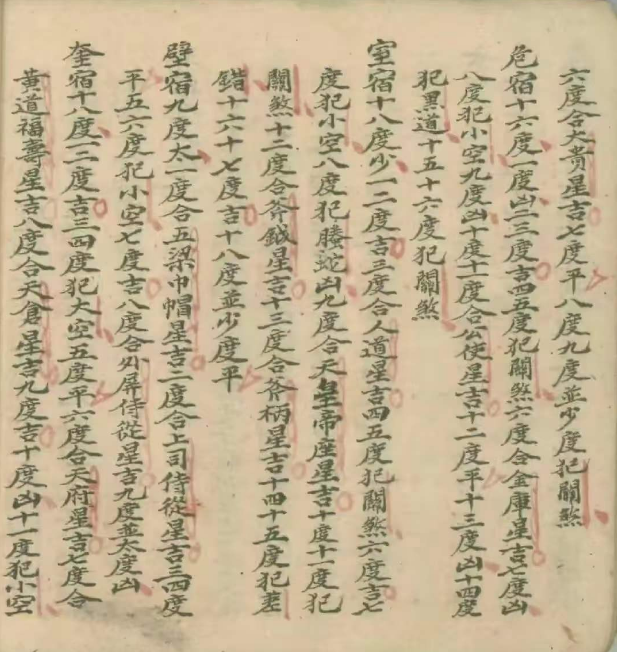 六度合大貴星吉七度平八度九度並少度犯關煞
危宿十六度一度凶二三度吉四五度犯關煞六度合金庫星吉七度凶
八度犯小空九度凶十度十一度合公使星吉十二度平十三度凶十四度
犯黑道十五十六度犯關煞
室宿十八度少一二度吉三度合人道星吉四五度犯關煞六度吉七
度犯小空八度犯騰蛇凶九度合天皇帝座星吉十度十一度犯
關煞十二度合斧鉞星吉十三度合斧柄星吉十四十五度犯差
錯十六十七度吉十八度並少度平
壁宿九度太一度合五梁巾帽星吉二度合上司侍從星吉三四度
平五六度犯小空七度吉八度合外屏侍從星吉九度並太度凶
奎宿十八度一二度吉三四度犯大空五度平六度合天府星吉七度合
黃道福壽星吉八度合天倉星吉九度吉十度凶十一度犯小空